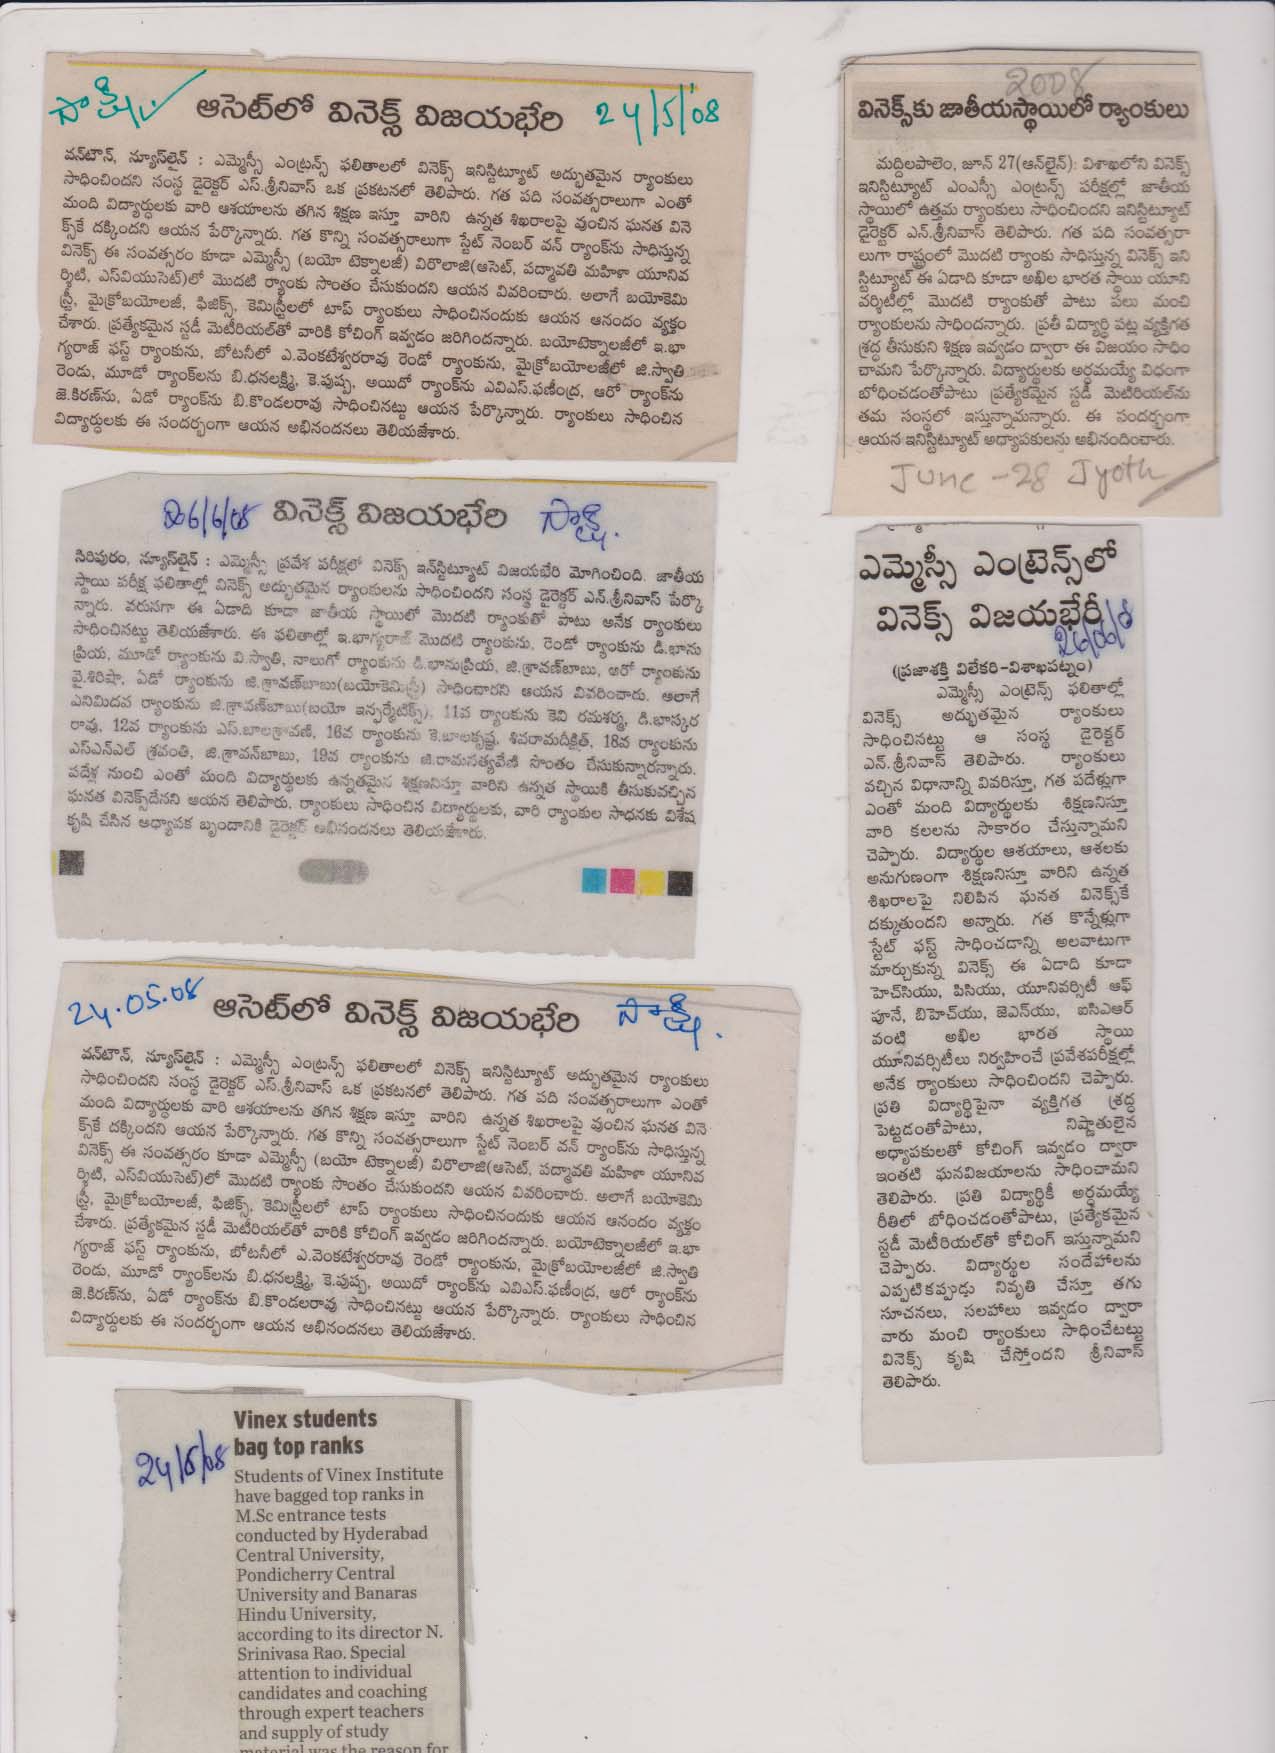 సాక్షి
ఆసెట్‌లో వినెక్స్ విజయభేరి
24/5/'08
వన్‌టౌన్, న్యూస్‌లైన్ : ఎమ్మెస్సీ ఎంట్రన్స్ ఫలితాలలో వినెక్స్ ఇనిస్టిట్యూట్ అద్భుతమైన ర్యాంకులు
సాధించిందని సంస్థ డైరెక్టర్ ఎస్.శ్రీనివాస్ ఒక ప్రకటనలో తెలిపారు. గత పది సంవత్సరాలుగా ఎంతో
మంది విద్యార్థులకు వారి ఆశయాలను తగిన శిక్షణ ఇస్తూ వారిని ఉన్నత శిఖరాలపై వుంచిన ఘనత వినె
క్స్‌కే దక్కిందని ఆయన పేర్కొన్నారు. గత కొన్ని సంవత్సరాలుగా స్టేట్ నెంబర్ వన్ ర్యాంక్‌ను సాధిస్తున్న
వినెక్స్ ఈ సంవత్సరం కూడా ఎమ్మెస్సీ (బయో టెక్నాలజీ) విరొలాజి(ఆసెట్, పద్మావతి మహిళా యూనివ
ర్శిటి, ఎస్‌వియుసెట్)లో మొదటి ర్యాంకు సొంతం చేసుకుందని ఆయన వివరించారు. అలాగే బయోకెమి
స్ట్రీ, మైక్రోబయోలజీ, ఫిజిక్స్, కెమిస్ట్రీలలో టాప్ ర్యాంకులు సాధించినందుకు ఆయన ఆనందం వ్యక్తం
చేశారు. ప్రత్యేకమైన స్టడీ మెటీరియల్‌తో వారికి కోచింగ్ ఇవ్వడం జరిగిందన్నారు. బయోటెక్నాలజీలో ఇ.భా
గ్యరాజ్ ఫస్ట్ ర్యాంకును, బోటనీలో ఎ.వెంకటేశ్వరరావు రెండో ర్యాంకును, మైక్రోబయోలజీలో జి.స్వాతి
రెండు, మూడో ర్యాంక్‌లను బి.ధనలక్ష్మి, కె.పుష్ప, అయిదో ర్యాంక్‌ను ఎవిఎస్.ఫణీంద్ర, ఆరో ర్యాంక్‌ను
జె.కిరణ్‌ను, ఏడో ర్యాంక్‌ను బి.కొండలరావు సాధించినట్టు ఆయన పేర్కొన్నారు. ర్యాంకులు సాధించిన
విద్యార్థులకు ఈ సందర్భంగా ఆయన అభినందనలు తెలియజేశారు.
2008
వినెక్స్‌కు జాతీయస్థాయిలో ర్యాంకులు
మద్దిలపాలెం, జూన్ 27(ఆన్‌లైన్): విశాఖలోని వినెక్స్
ఇనిస్టిట్యూట్ ఎంఎస్సీ ఎంట్రన్స్ పరీక్షల్లో జాతీయ
స్థాయిలో ఉత్తమ ర్యాంకులు సాధించిందని ఇనిస్టిట్యూట్
డైరెక్టర్ ఎన్.శ్రీనివాస్ తెలిపారు. గత పది సంవత్సరా
లుగా రాష్ట్రంలో మొదటి ర్యాంకు సాధిస్తున్న వినెక్స్ ఇని
స్టిట్యూట్ ఈ ఏడాది కూడా అఖిల భారత స్థాయి యూని
వర్శిటీల్లో మొదటి ర్యాంకుతో పాటు పలు మంచి
ర్యాంకులను సాధిందన్నారు. ప్రతీ విద్యార్థి పట్ల వ్యక్తిగత
శ్రద్ధ తీసుకుని శిక్షణ ఇవ్వడం ద్వారా ఈ విజయం సాధిం
చామని పేర్కొన్నారు. విద్యార్థులకు అర్థమయ్యే విధంగా
బోధించడంతోపాటు ప్రత్యేకమైన స్టడీ మెటిరియల్‌ను
తమ సంస్థలో ఇస్తున్నామన్నారు. ఈ సందర్భంగా
ఆయన ఇనిస్టిట్యూట్ అధ్యాపకులను అభినందించారు.
June - 28 Jyothi
06/6/08
వినెక్స్ విజయభేరి
సాక్షి.
సిరిపురం, న్యూస్‌లైన్ : ఎమ్మెస్సీ ప్రవేశ పరీక్షలో వినెక్స్ ఇన్‌స్టిట్యూట్ విజయభేరి మోగించింది. జాతీయ
స్థాయి పరీక్ష ఫలితాల్లో వినెక్స్ అద్భుతమైన ర్యాంకులను సాధించిందని సంస్థ డైరెక్టర్ ఎన్.శ్రీనివాస్ పేర్కొ
న్నారు. వరుసగా ఈ ఏడాది కూడా జాతీయ స్థాయిలో మొదటి ర్యాంకుతో పాటు అనేక ర్యాంకులు
సాధించినట్టు తెలియజేశారు. ఈ ఫలితాల్లో ఇ.భాగ్యరాజ్ మొదటి ర్యాంకును, రెండో ర్యాంకును డి.భాను
ప్రియ, మూడో ర్యాంకును వి.స్వాతి, నాలుగో ర్యాంకును డి.భానుప్రియ, జి.శ్రావణ్‌బాబు, ఆరో ర్యాంకును
వై.శిరిషా, ఏడో ర్యాంకును జి.శ్రావణ్‌బాబు(బయోకెమిస్ట్రీ) సాధించారని ఆయన వివరించారు. అలాగే
ఎనిమిదవ ర్యాంకును జి.శ్రావణ్‌బాబు(బయో ఇన్ఫర్మేటిక్స్), 11వ ర్యాంకును కెవి రమశర్మ, డి.భాస్కర
రావు, 12వ ర్యాంకును ఎస్.బాలశ్రావణి, 16వ ర్యాంకును కె.బాలకృష్ణ, శివరామదీక్షిత్, 18వ ర్యాంకును
ఎస్ఎన్ఎల్ శ్రవంతి, జి.శ్రావన్‌బాబు, 19వ ర్యాంకును జి.రామసత్యవేణి సొంతం చేసుకున్నారన్నారు.
పదేళ్ల నుంచి ఎంతో మంది విద్యార్థులకు ఉన్నతమైన శిక్షణనిస్తూ వారిని ఉన్నత స్థాయికి తీసుకువచ్చిన
ఘనత వినెక్స్‌దేనని ఆయన తెలిపారు. ర్యాంకులు సాధించిన విద్యార్థులకు, వారి ర్యాంకుల సాధనకు విశేష
కృషి చేసిన అధ్యాపక బృందానికి డైరెక్టర్ అభినందనలు తెలియజేశారు.
ఎమ్మెస్సీ ఎంట్రెన్స్‌లో
వినెక్స్ విజయభేరీ
26/06/08
(ప్రజాశక్తి విలేకరి-విశాఖపట్నం)
ఎమ్మెస్సీ ఎంట్రెన్స్ ఫలితాల్లో
వినెక్స్ అద్భుతమైన ర్యాంకులు
సాధించినట్టు ఆ సంస్థ డైరెక్టర్
ఎన్.శ్రీనివాస్ తెలిపారు. ర్యాంకులు
వచ్చిన విధానాన్ని వివరిస్తూ, గత పదేళ్లుగా
ఎంతో మంది విద్యార్థులకు శిక్షణనిస్తూ
వారి కలలను సాకారం చేస్తున్నామని
చెప్పారు. విద్యార్థుల ఆశయాలు, ఆశలకు
అనుగుణంగా శిక్షణనిస్తూ వారిని ఉన్నత
శిఖరాలపై నిలిపిన ఘనత వినెక్స్‌కే
దక్కుతుందని అన్నారు. గత కొన్నేళ్లుగా
స్టేట్ ఫస్ట్ సాధించడాన్ని అలవాటుగా
మార్చుకున్న వినెక్స్ ఈ ఏడాది కూడా
హెచ్‌సియు, పిసియు, యూనివర్సిటీ ఆఫ్
పూనే, బిహెచ్‌యు, జెఎన్‌యు, ఐసిఎఆర్
వంటి అఖిల భారత స్థాయి
యూనివర్సిటీలు నిర్వహించే ప్రవేశపరీక్షల్లో
అనేక ర్యాంకులు సాధించిందని చెప్పారు.
ప్రతి విద్యార్థిపైనా వ్యక్తిగత శ్రద్ధ
పెట్టడంతోపాటు, నిష్ణాతులైన
అధ్యాపకులతో కోచింగ్ ఇవ్వడం ద్వారా
ఇంతటి ఘనవిజయాలను సాధించామని
తెలిపారు. ప్రతి విద్యార్థికీ అర్థమయ్యే
రీతిలో బోధించడంతోపాటు, ప్రత్యేకమైన
స్టడీ మెటీరియల్‌తో కోచింగ్ ఇస్తున్నామని
చెప్పారు. విద్యార్థుల సందేహాలను
ఎప్పటికప్పుడ్డు నివృతి చేస్తూ తగు
సూచనలు, సలహాలు ఇవ్వడం ద్వారా
వారు మంచి ర్యాంకులు సాధించేటట్టు
వినెక్స్ కృషి చేస్తోందని శ్రీనివాస్
తెలిపారు.
24.05.08
ఆసెట్‌లో వినెక్స్ విజయభేరి
సాక్షి.
వన్‌టౌన్, న్యూస్‌లైన్ : ఎమ్మెస్సీ ఎంట్రన్స్ ఫలితాలలో వినెక్స్ ఇనిస్టిట్యూట్ అద్భుతమైన ర్యాంకులు
సాధించిందని సంస్థ డైరెక్టర్ ఎస్.శ్రీనివాస్ ఒక ప్రకటనలో తెలిపారు. గత పది సంవత్సరాలుగా ఎంతో
మంది విద్యార్థులకు వారి ఆశయాలను తగిన శిక్షణ ఇస్తూ వారిని ఉన్నత శిఖరాలపై వుంచిన ఘనత వినె
క్స్‌కే దక్కిందని ఆయన పేర్కొన్నారు. గత కొన్ని సంవత్సరాలుగా స్టేట్ నెంబర్ వన్ ర్యాంక్‌ను సాధిస్తున్న
వినెక్స్ ఈ సంవత్సరం కూడా ఎమ్మెస్సీ (బయో టెక్నాలజీ) విరొలాజి(ఆసెట్, పద్మావతి మహిళా యూనివ
ర్శిటి, ఎస్‌వియుసెట్)లో మొదటి ర్యాంకు సొంతం చేసుకుందని ఆయన వివరించారు. అలాగే బయోకెమి
స్ట్రీ, మైక్రోబయోలజీ, ఫిజిక్స్, కెమిస్ట్రీలలో టాప్ ర్యాంకులు సాధించినందుకు ఆయన ఆనందం వ్యక్తం
చేశారు. ప్రత్యేకమైన స్టడీ మెటీరియల్‌తో వారికి కోచింగ్ ఇవ్వడం జరిగిందన్నారు. బయోటెక్నాలజీలో ఇ.భా
గ్యరాజ్ ఫస్ట్ ర్యాంకును, బోటనీలో ఎ.వెంకటేశ్వరరావు రెండో ర్యాంకును, మైక్రోబయోలజీలో జి.స్వాతి
రెండు, మూడో ర్యాంక్‌లను బి.ధనలక్ష్మి, కె.పుష్ప, అయిదో ర్యాంక్‌ను ఎవిఎస్.ఫణీంద్ర, ఆరో ర్యాంక్‌ను
జె.కిరణ్‌ను, ఏడో ర్యాంక్‌ను బి.కొండలరావు సాధించినట్టు ఆయన పేర్కొన్నారు. ర్యాంకులు సాధించిన
విద్యార్థులకు ఈ సందర్భంగా ఆయన అభినందనలు తెలియజేశారు.
Vinex students
bag top ranks
24/5/08
Students of Vinex Institute
have bagged top ranks in
M.Sc entrance tests
conducted by Hyderabad
Central University,
Pondicherry Central
University and Banaras
Hindu University,
according to its director N.
Srinivasa Rao. Special
attention to individual
candidates and coaching
through expert teachers
and supply of study
material was the reason for